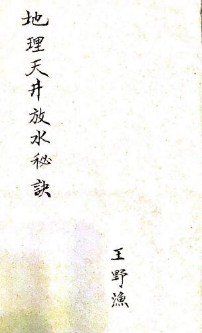 地理天井放水秘訣
王野漁